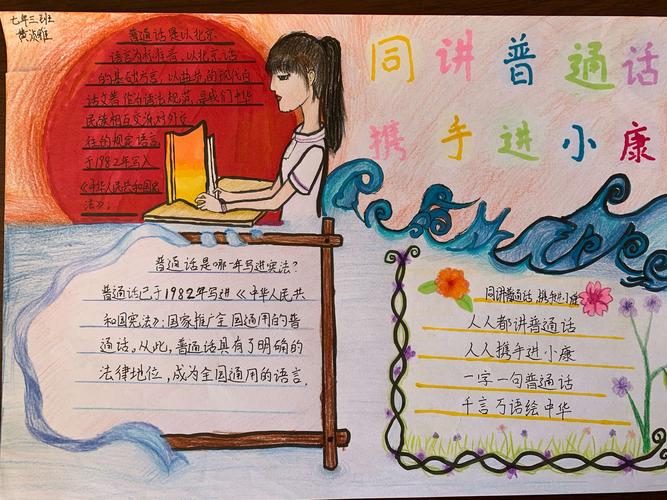 七年三班
同讲普通话
携手进小康
普通话是以北京
语言为标准音，以北京话
的基础方言，以典范的现代白
话文著作为语法规范，是我们中华
民族相互交流对外交
往的规定语言
于1982年写入
《中华人民共和国宪
法》。
普通话是哪一年写进宪法？
普通话已于1982年写进《中华人民共
和国宪法》：国家推广全国通用的普
通话。从此，普通话具有了明确的
法律地位，成为全国通用的语言.
同讲普通话，携手进小康
人人都讲普通话
人人携手进小康
一字一句普通话
千言万语绘中华